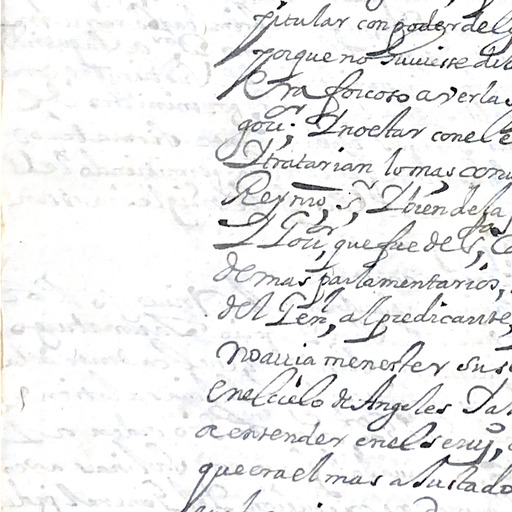 pitular con poder del
porque no huuiesse dil
Era forcoso a verlas
gou.or; Y no estar con el e
Y tratarian lo mas conu
Reyno, s.r Y bien de la
Y Gou.or, que fue de s,
demas parlamentarios,
del Gen.l, al predicante,
no auia menester sus
en el cielo de Angeles Ya
a entender en el seruy.o,
que era el mas asustado